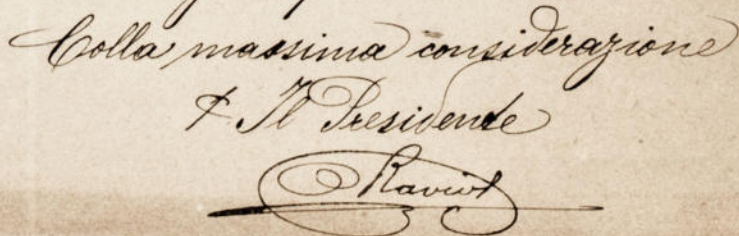 Colla massima considerazione
Il Presidente